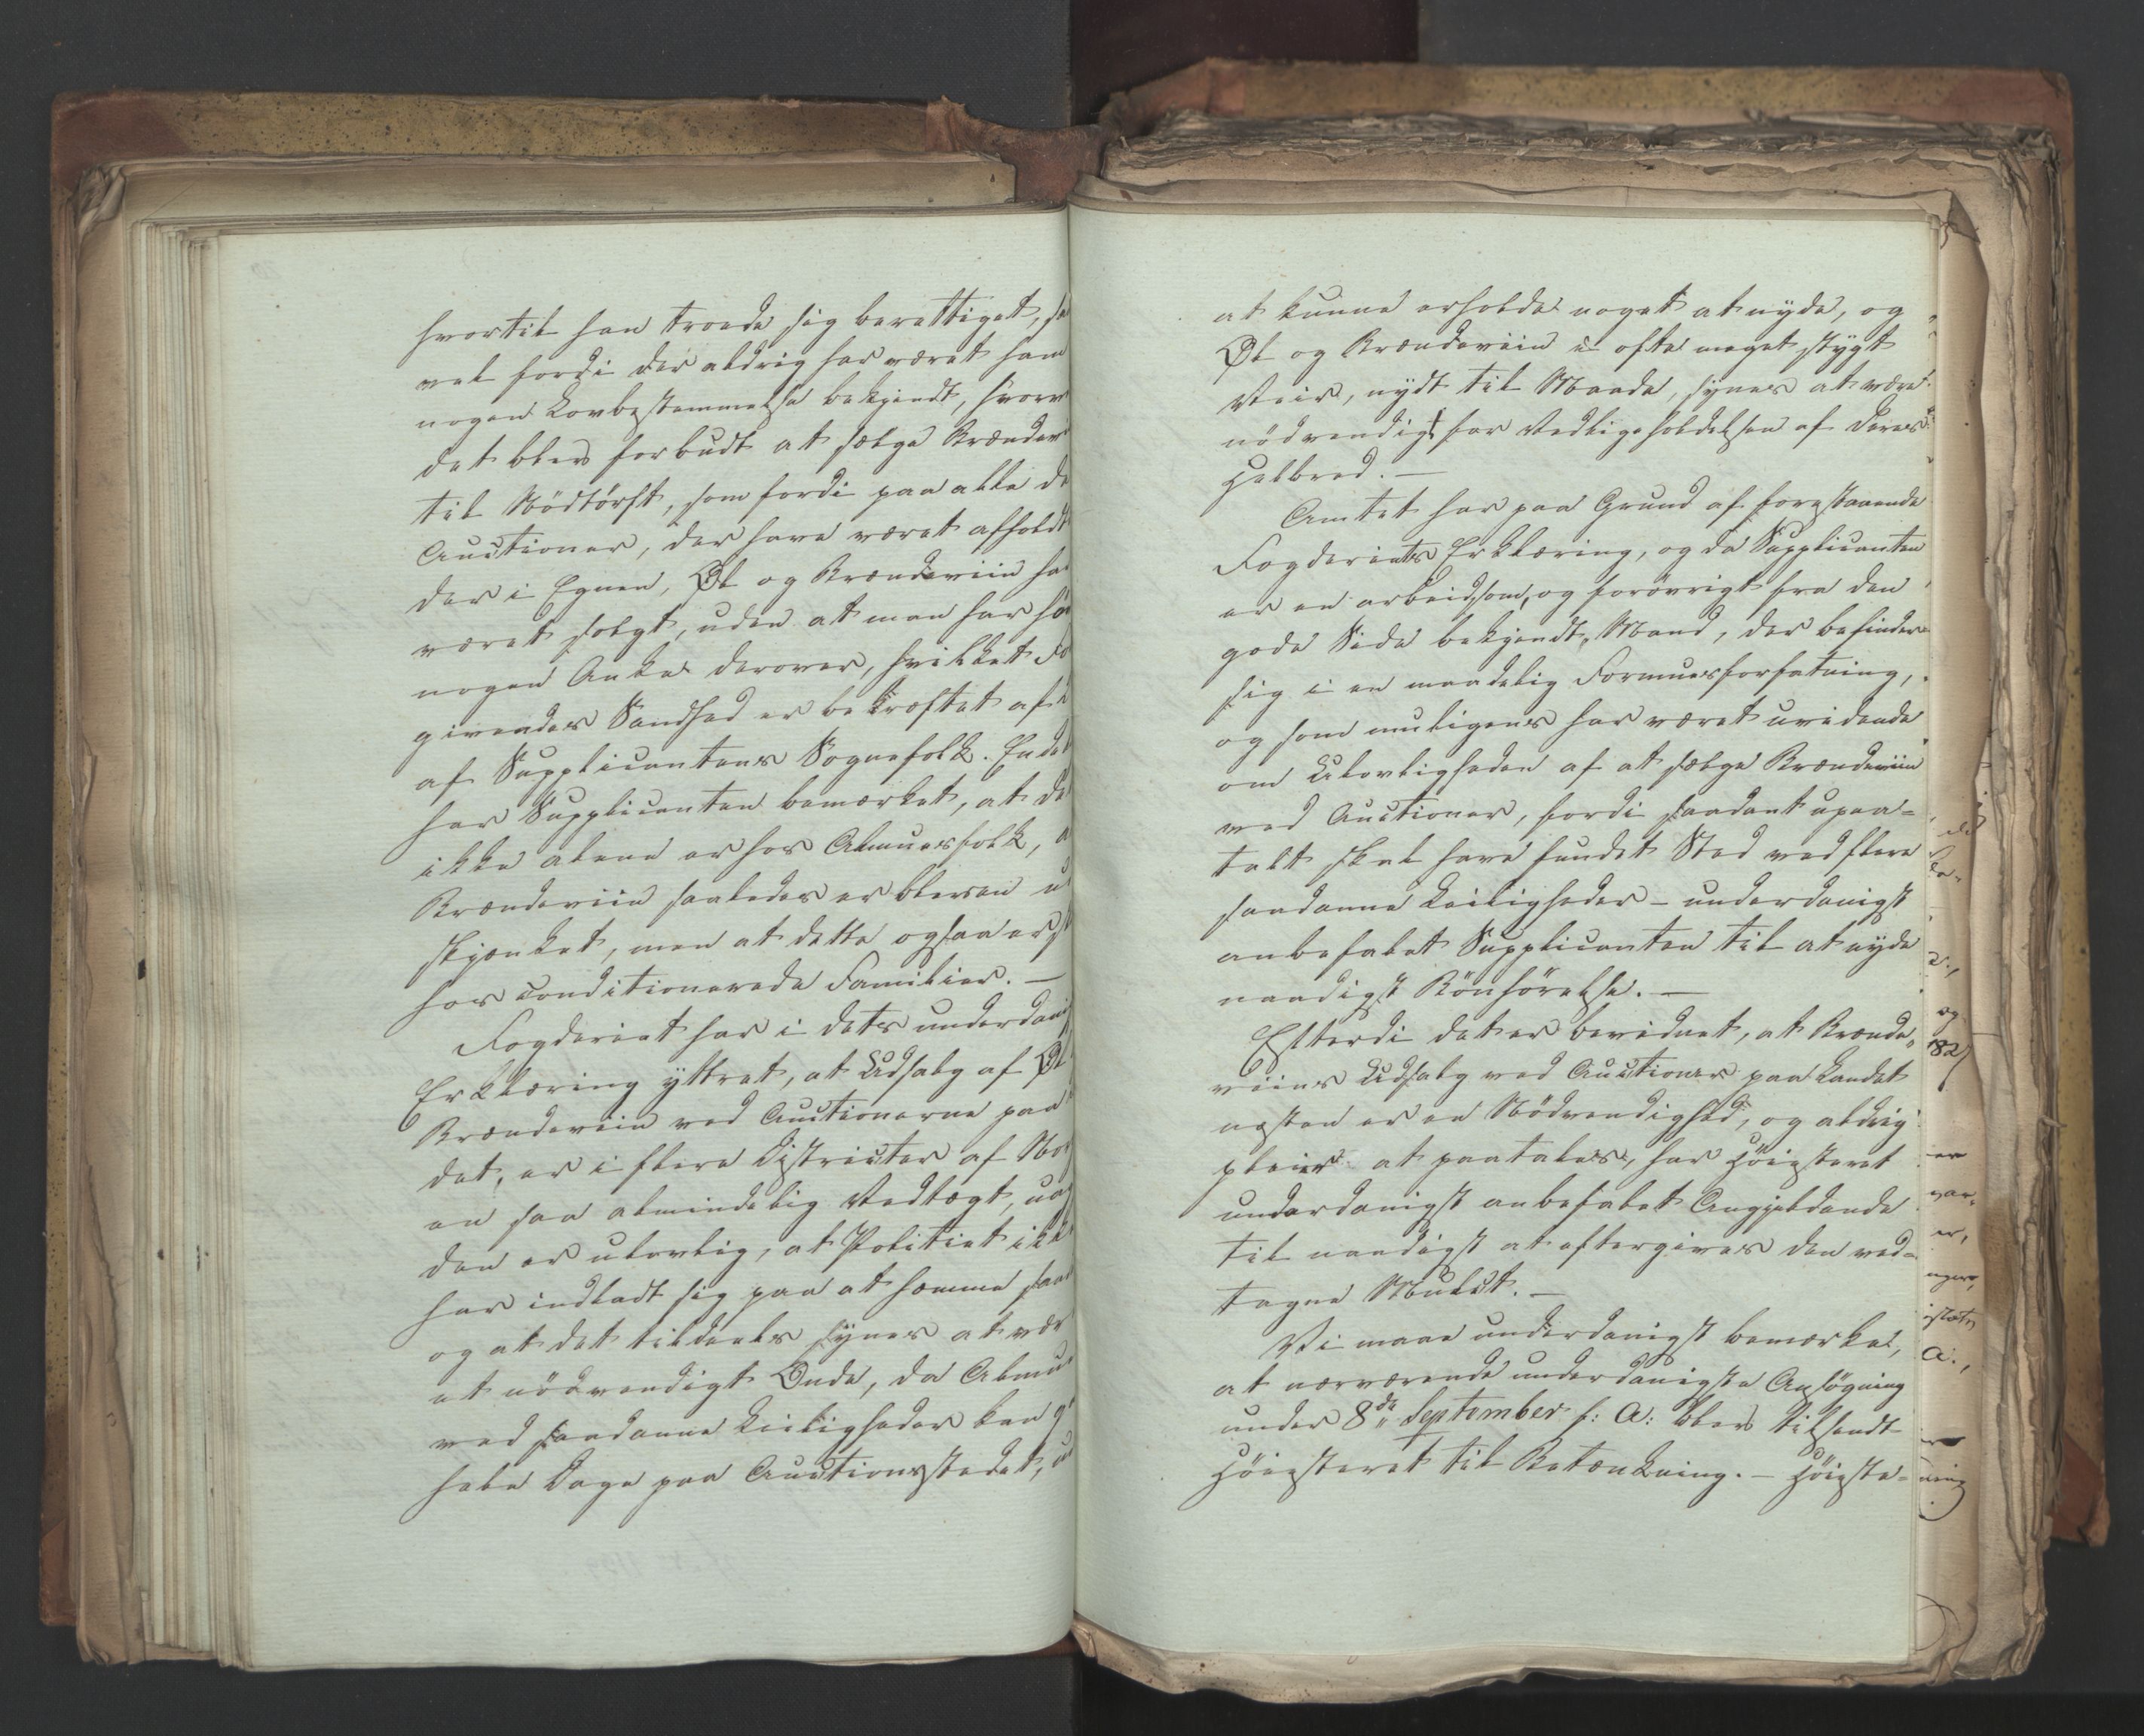 hvortil han troede sig berettiget, saa
vel fordi der aldrig har været ham
nogen Lovbestemmelse bekjendt, hvorv
det blev forbudt at sælge Brændev
til Nödtörft, som fordi paa alle de
Auctioner, der have været afholdt
der i Egnen, Øl og Brændeviin ha
været solgt, uden at man har hö
nogen Anke derover, hvilket Fo
givendes Sandhed er bekræftet af
af Supplicantens Sognefolk. Endel
har Supplicanten bemærket, at de
ikke alene er hos Almuesfolk, a
Brændeviin saaledes er bleven u
skjænket, men at dette ogsaa er s
hos conditionerede Familier. —
Fogderiet har i dets underdani
Erklæring yttret, at Udsalg af Øl
Brændeviin ved Auctionerne paa
det, er i flere Districter af No
en saa almindelig Vedtægt, uag
den er ulovlig, at Politiet ikke
har indladt sig paa at hæmme saa
og at det tildeels synes at vær
et nödvendigt Onde, da Almu
ved saadanne Leiligheder kan g
hele Dage paa Auctionsstedet, u
at kunne erholde noget at nyde, og
Øl og Brændeviin i ofte meget stygt
Veir, nydt til Maade, synes at være
nödvendigt for Vedligeholdelsen af deres
Helbred. —
Amtet har paa Grund af forestaaende
Fogderiets Erklæring, og da Supplicanten
er en arbeidsom, og forövrigt fra den
gode Side bekjendt, Mand, der befinder
sig i en maadelig Formuesforfatning,
og som muligens har været uvidende
om Ulovligheden af at sælge Brændeviin
ved Auctioner, fordi saadant upaa-
talt skal have fundet Sted ved flere
saadanne Leiligheder – underdanigst
anbefalet Supplicanten til at nyde
naadigst Bönhörelse. —
Efterdi det er bevidnet, at Brænde„
viins Udsalg ved Auctioner paa Landet
næsten er en Nödvendighed, og aldrig
pleier at paatales, har Höiesteret
underdanigst anbefalet Angjeldende
til naadigst at eftergives den ved-
tagne Mulct. —
Vi maae underdanigst bemærke,
at nærværende underdanigste Ansögning
under 8de September f: A: blev tilsendt
Höiesteret til Betænkning. – Höieste-